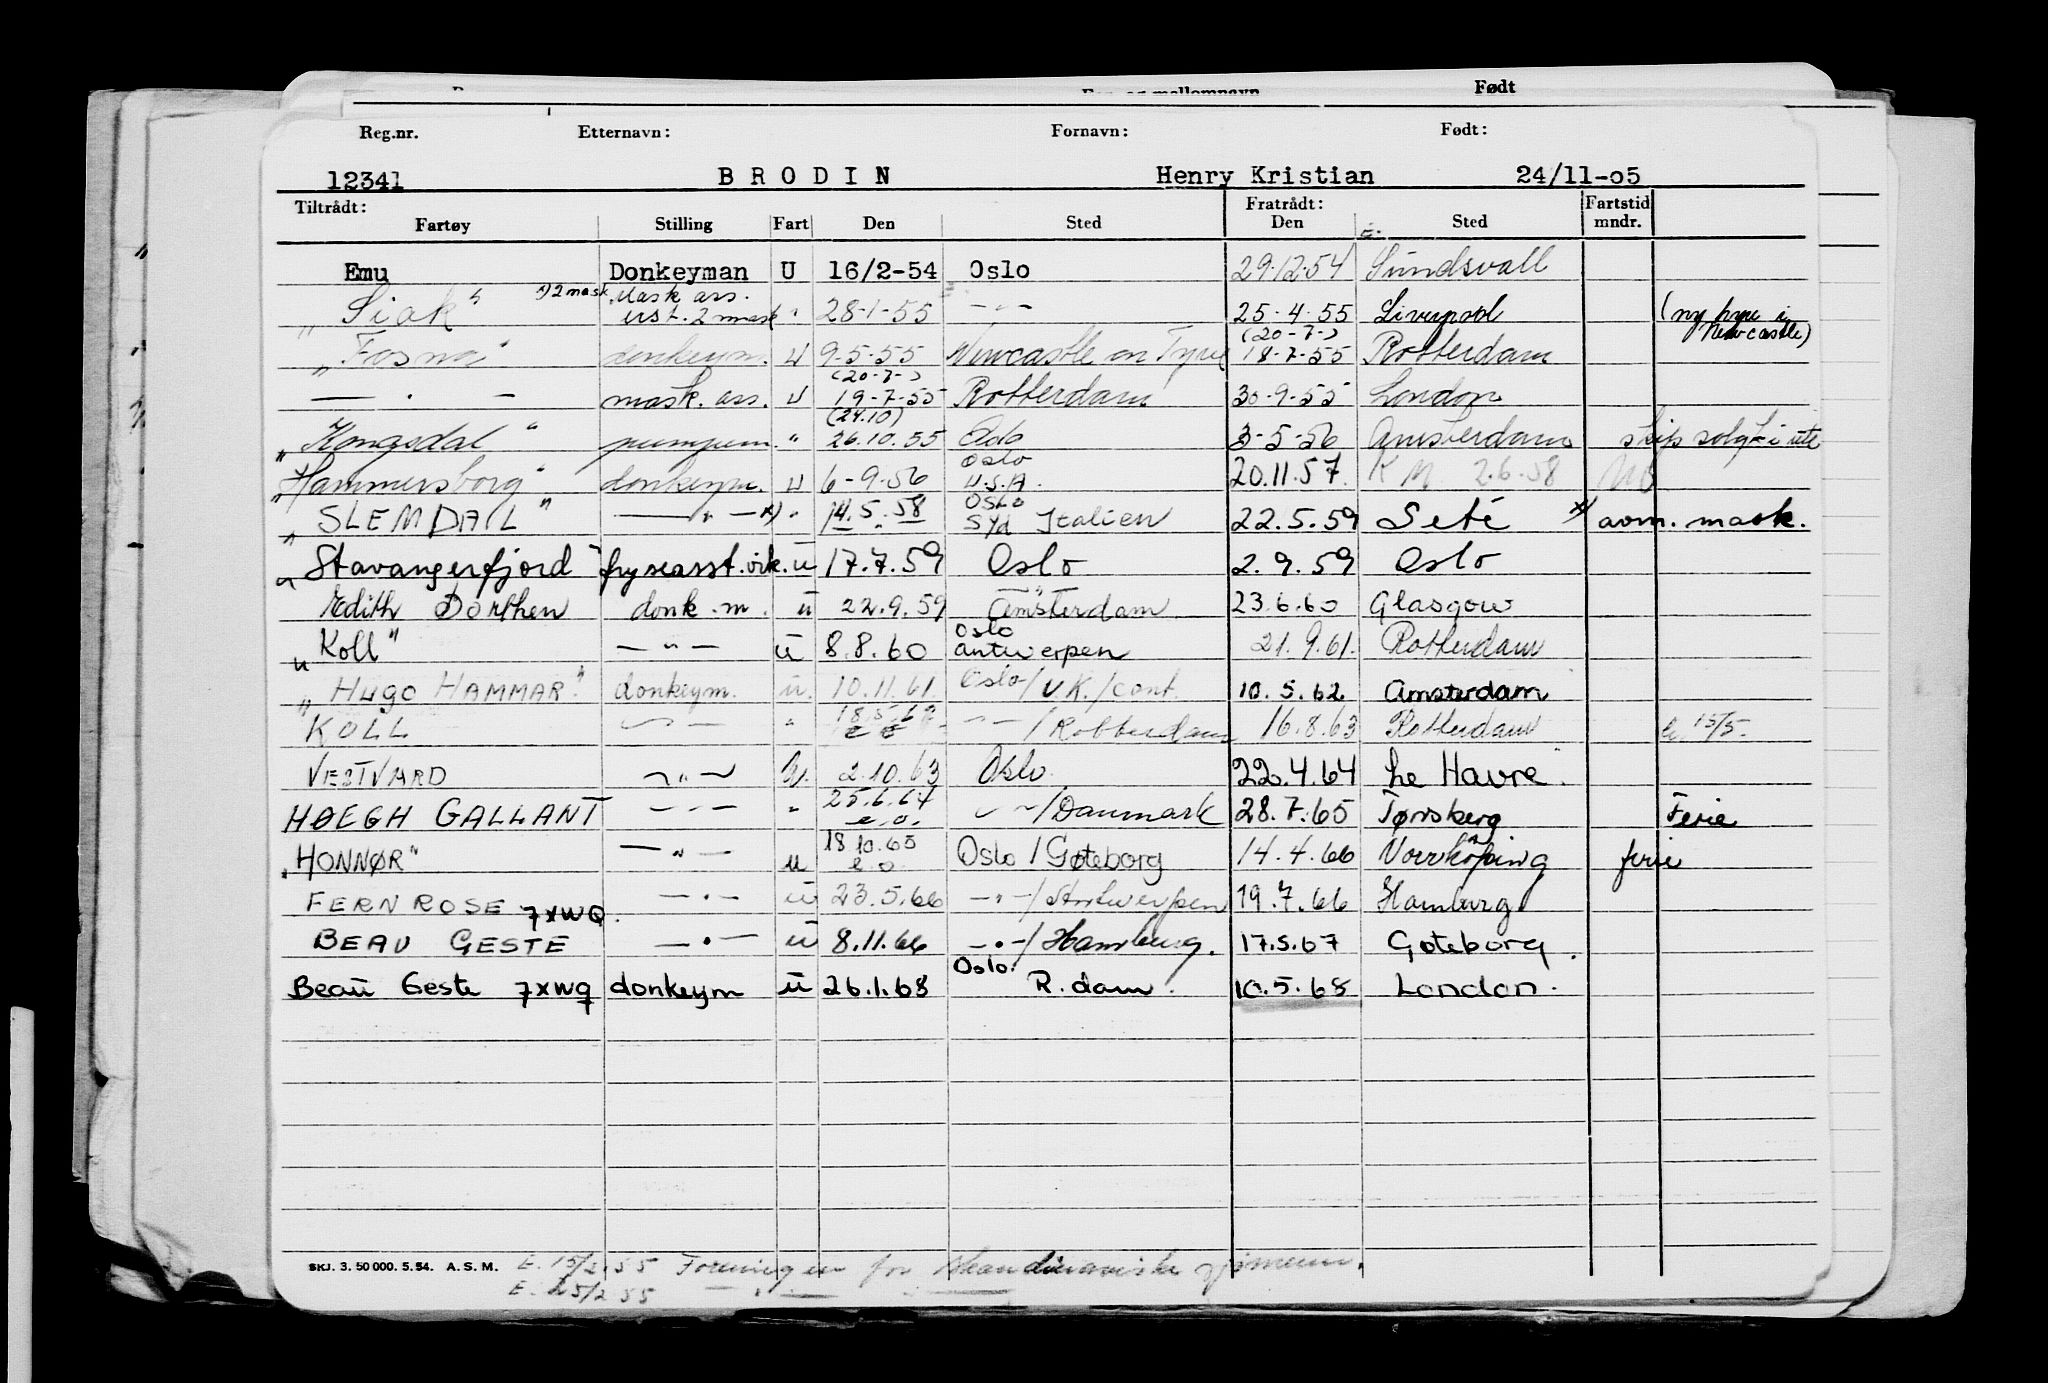 Født
Reg.nr. Etternavn: Fornavn: Født:
12341 BRODIN Henry Kristian 24/11-05
Tiltrådt: Fratrådt: Fartstid
Fartøy Stilling Fart Den Sted Den Sted mndr.
Emu Donkeyman U 16/2-54 Oslo 29.12.54 Sundsvall
"Siak" x) 2 mask. Mask ass. urst. 2 mask " 28-1-55 — " — 25-4-55 Liverpool (ny hyre i Newcastle)
"Fosna" donkeym. U 9-5-55 Newcastle on Tyne (20-7-) 18-7-55 Rotterdam
— . — mask. ass. U (20-7-) 19-7-55 Rotterdam 30-9-55 London
"Kongsdal" pumpem. " (24.10) 26.10.55 Oslo 3-5-56 Amsterdam skip solgt i ute
"Hammersborg" donkeym. U 6-9-56 Oslo U.S.A. 20.11.57. KM 2.6.58
"SLEMDAL" — " — x) " 14.5.58 Oslo Syd Italien 22.5.59 Seté x) avm. mask.
"Stavangerfjord" fryseasst.vik. u 17.7.59 Oslo 2.9.59 Oslo
Edith Dorthen donk.m. u 22.9.59 — " — Amsterdam 23.6.60 Glasgow
"Koll" — " — u 8.8.60 Oslo Antwerpen 21.9.61. Rotterdam
"HUGO HAMMAR." donkeym. u. 10.11.61. Oslo/U.K./cont. 10.5.62 Amsterdam
KOLL — " — " 18.5.62 — " — /Rotterdam 16.8.63 Rotterdam 15/5.
VESTVARD — " — U. 2.10.63 Oslo. 22.4.64 Le Havre.
HØEGH GALLANT — " — " 25.6.64 e.o. — " — /Danmark 28.7.65 Tønsberg Ferie
"HONNØR" — " — u 18.10.65 e.o. Oslo/Gøteborg 14.4.66 Norrköping ferie
FERNROSE — " — u 23.5.66 — " — /Antwerpen 19.7.66 Hamburg
7XWQ.
BEAU GESTE — " — u 8.11.66 — " — /Hamburg. 17.5.67 Gøteborg.
Beau Geste 7XWQ donkeym u 26.1.68 Oslo. R.dam. 10.5.68 London.
SKJ. 3. 50 000. 5. 54. A. S. M. E. 15/2.55 Foreningen for Skandinaviske sjømenn.
E. 25/2 55 — " —